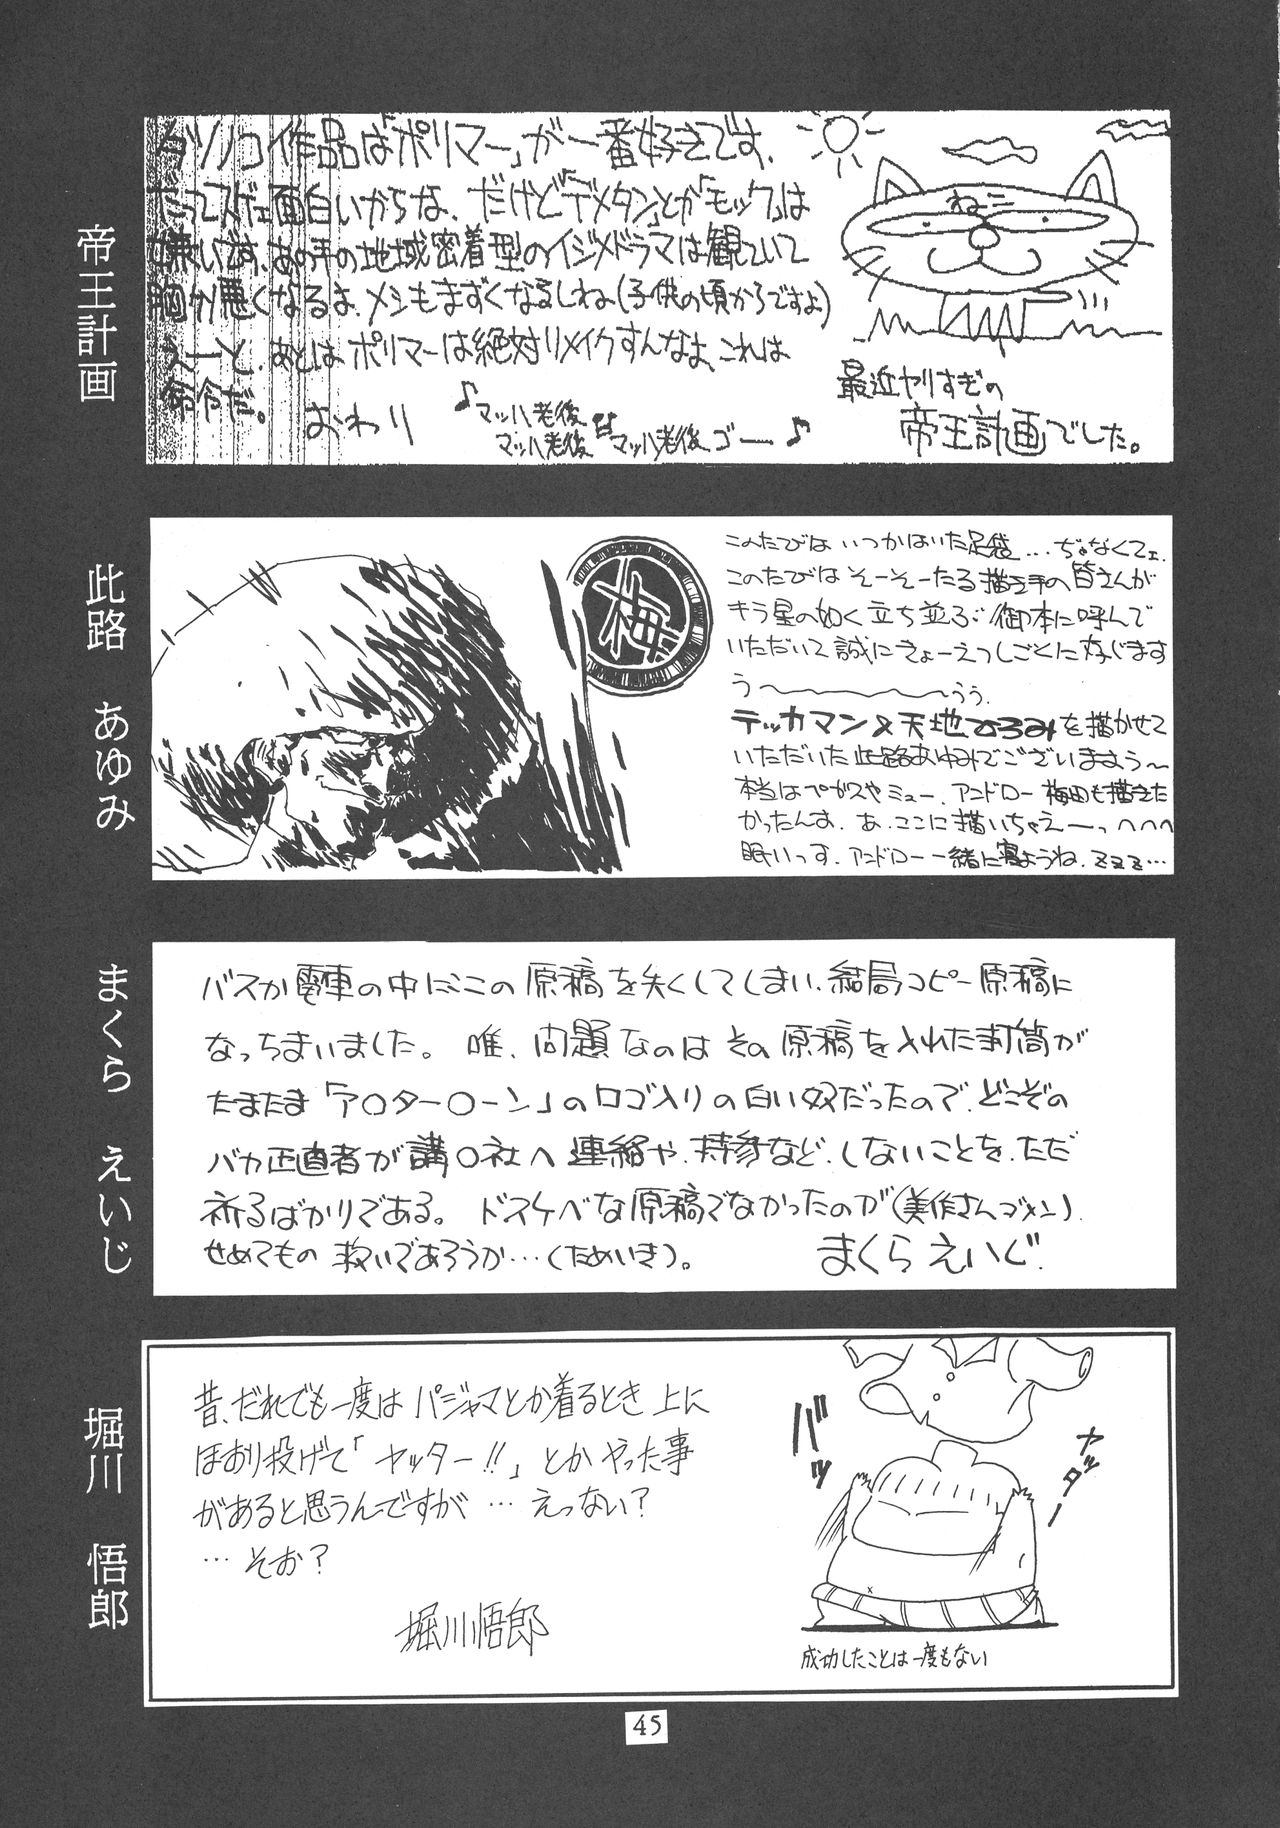 帝王計画
タツノコ作品は「ポリマー」が一番好きです、
だってスゲェ面白いからな、だけど「デメタン」とか「モック」は
嫌いです、あの手の地域密着型のイジメドラマは観ていて
胸が悪くなるよ、メシもまずくなるしね(子供の頃からですよ)
えーと、あとはポリマーは絶対リメイクすんなよ、これは
命令だ。
おわり
♪マッハ老後
マッハ老後
マッハ老後 ゴー♪
ねこ
最近ヤリすぎの
帝王計画でした。
此路 あゆみ
梅
このたびは いつかはいた足袋…ぢゃなくてェ、
このたびは そーそーたる描き手の皆さんが
キラ星の如く立ち並ぶ御本に呼んで
いただいて誠にきょーえつしごとに存じます
う〜〜〜〜〜うぅ、
テッカマン×天地ひろみを描かせて
いただいた此路あゆみでございますぅ〜
本当はペガスやミュー、アンドロー梅田も描きた
かったんす、あ、ここに描いちゃえーっへへへ
眠いっす、アンドロー一緒に寝ようね、zzz…
まくら えいじ
バスか電車の中にこの原稿を失くしてしまい、結局コピー原稿に
なっちまいました。唯、問題なのはその原稿を入れた封筒が
たまたま「ア○ター○ーン」のロゴ入りの白い奴だったので、どこぞの
バカ正直者が講○社へ連絡や、持参など、しないことを、ただ
祈るばかりである。ドスケベな原稿でなかったのが(美作さんゴメン)、
せめてもの救いであろうか…(ためいき)。
まくらえいじ.
堀川 悟郎
昔、だれでも一度はパジャマとか着るとき上に
ほおり投げて「ヤッター!!」とかやった事
があると思うんですが…えっない?
…そお?
堀川悟郎
バッ
ヤッター
成功したことは一度もない
45